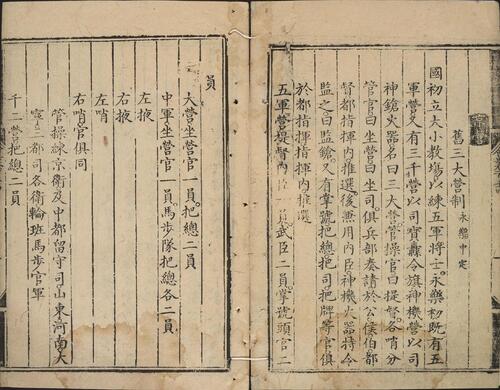 舊三大營制永樂中定
國初立大小教場以練五軍將士永樂初既有五
軍營又有三千營以司寶纛令旗神機營以司
神鎗火器名曰三大營營操官曰提督各哨分
管官曰坐營曰坐司俱兵部奏請於公侯伯都
督都指揮內推選後兼用內臣神機火器特令
監之曰監鎗又有掌號把總把司把牌等官俱
於都指揮指揮內推選
五軍營提督內臣一員武臣二員掌號頭官二
員
大營坐營官一員把總二員
中軍坐營官一員馬步隊把總各二員
左掖
右掖
左哨
右哨官俱同
管操練京衛及中都留守司山東河南大
寧三都司各衛輪班馬步官軍
十二營把總二員